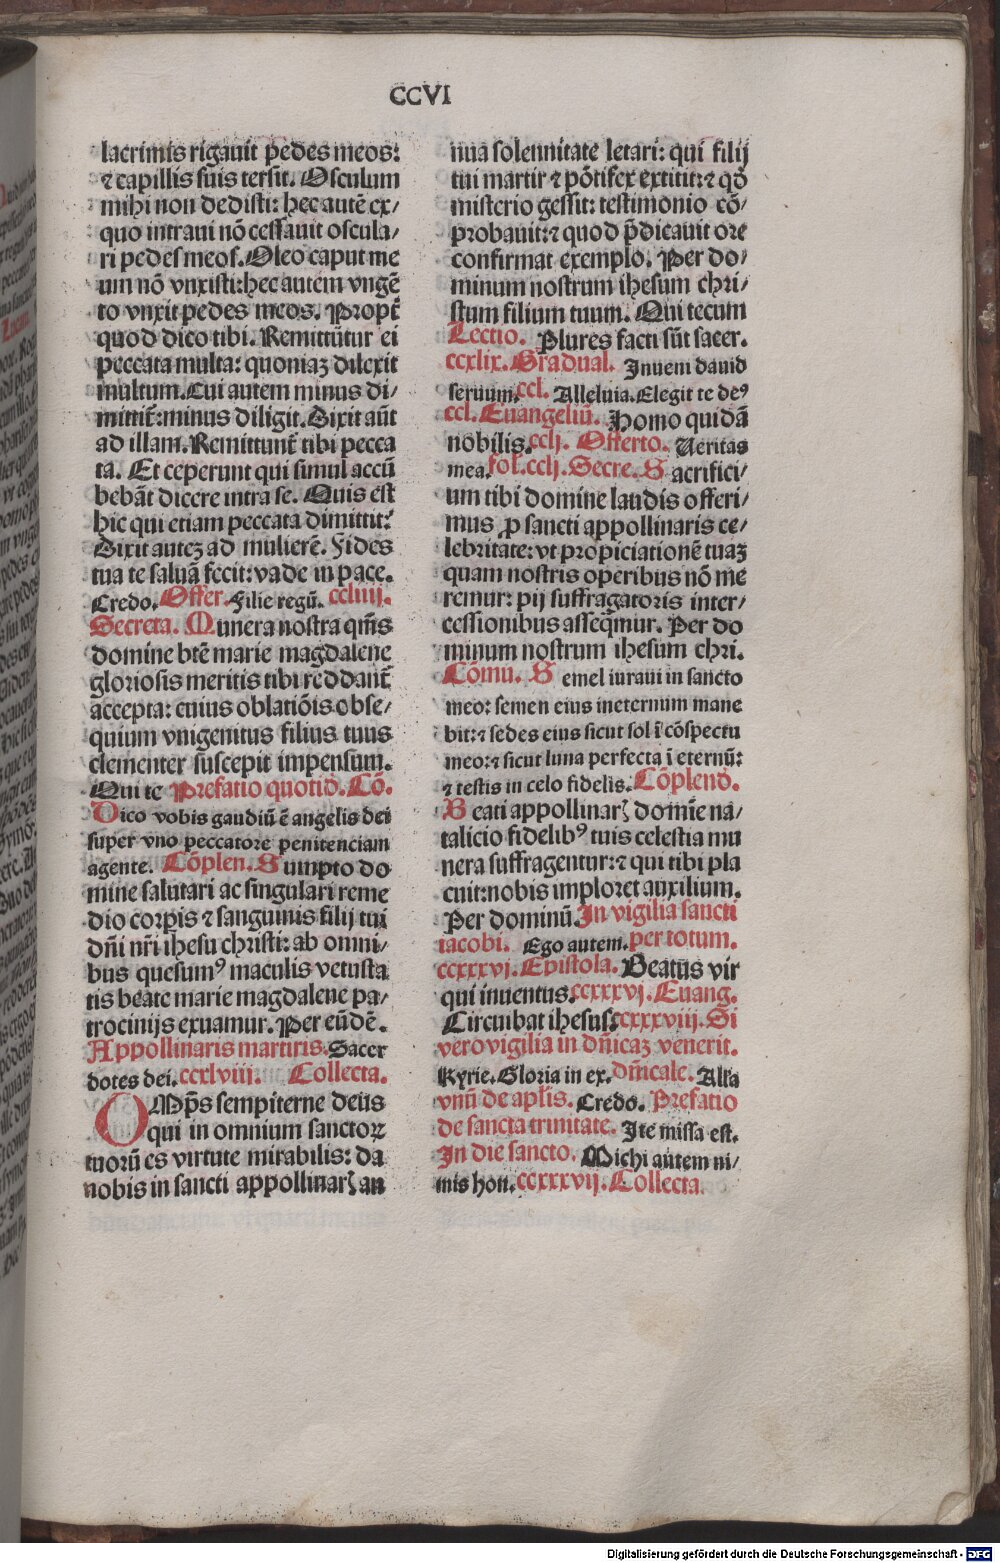 CCVI
lacrimis rigauit pedes meos:
⁊ capillis suis tersit. Osculum
mihi non dedisti: hec autē ex/
quo intraui nō cessauit oscula/
ri pedes meos. Oleo caput me
um nō vnxisti: hec autem vngē
to vnxit pedes meos. Propt̄
quod dico tibi. Remittūtur ei
peccata multa: quoniaꝫ dilexit
multum. Cui autem minus di/
mittit̄: minus diligit. Dixit aūt
ad illam. Remittunt̄ tibi pecca
ta. Et ceperunt qui simul accū
bebāt dicere intra se. Quis est
hic qui etiam peccata dimittit:
Dixit auteꝫ ad mulierē. Fides
tua te saluā fecit: vade in pace.
Credo. Offer. Filie regū. ccliiij.
Secreta. Munera nostra qm̄s
domine btē marie magdalene
gloriosis meritis tibi reddant̄
accepta: cuius oblatiōis obse/
quium vnigenitus filius tuus
clementer suscepit impensum.
Qui te Prefatio quotid. Cō.
Dico vobis gaudiū ē angelis dei
super vno peccatore penitenciam
agente. Cōplen. Sumpto do
mine salutari ac singulari reme
dio corpis ⁊ sanguinis filij tui
dn̄i nr̄i ihesu christi: ab omni/
bus quesumꝰ maculis vetusta
tis beate marie magdalene pa/
trocinijs exuamur. Per eūdē.
Appollinaris martiris. Sacer
dotes dei. ccxlviii. Collecta.
OMp̄s sempiterne deus
qui in omnium sanctoꝝ
tuorū es virtute mirabilis: da
nobis in sancti appollinarꝭ an
nua solennitate letari: qui filij
tui martir ⁊ pōtifex extitit: ⁊ qd̄
misterio gessit: testimonio cō/
probauit: ⁊ quod p̄dicauit ore
confirmat exemplo. Per do/
minum nostrum ihesum chri/
stum filium tuum. Qui tecum
Lectio. Plures facti sūt sacer.
ccxlix. Gradual. Inueni dauid
seruum. ccl. Alleluia. Elegit te deꝰ
ccl. Euangeliū. Homo quidā
nobilis. cclj. Offerto. Ueritas
mea. fol. cclj. Secre. Sacrifici/
um tibi domine laudis offeri/
mus ꝓ sancti appollinaris ce/
lebritate: vt propiciationē tuaꝫ
quam nostris operibus nō me
remur: pij suffragatoris inter/
cessionibus asseq̄mur. Per do
minum nostrum ihesum chri.
Cōmu. Semel iuraui in sancto
meo: semen eius ineternum mane
bit: ⁊ sedes eius sicut sol ī cōspectu
meo: ⁊ sicut luna perfecta ī eternū:
⁊ testis in celo fidelis. Cōplend.
Beati appollinarꝭ domīe na/
talicio fidelibꝰ tuis celestia mu
nera suffragentur: ⁊ qui tibi pla
cuit: nobis imploret auxilium.
Per dominū. In vigilia sancti
iacobi. Ego autem. per totum.
ccxxxvj. Epistola. Beatus vir
qui inuentus. ccxxxvj. Euang.
Circuibat ihesus. ccxxxviij. Si
vero vigilia in dn̄icaꝫ venerit.
Kyrie. Gloria in ex. dn̄icale. Alla
vnū de apl̄is. Credo. Prefatio
de sancta trinitate. Ite missa est.
In die sancto. Michi autem ni/
mis hon. ccxxxvij. Collecta.
Digitalisierung gefördert durch die Deutsche Forschungsgemeinschaft - DFG